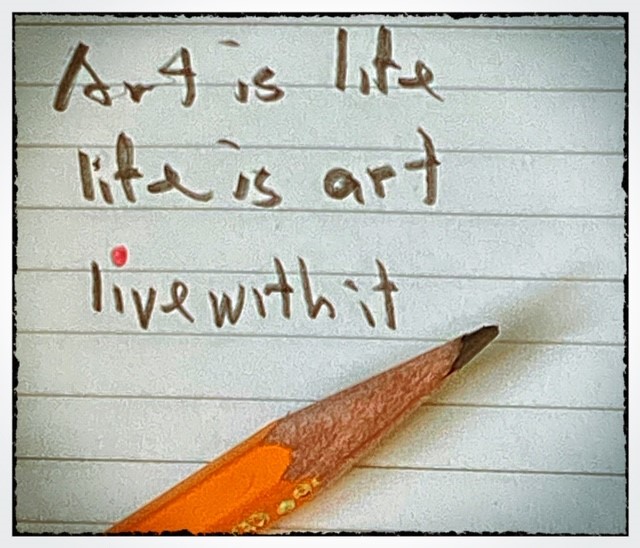 Art is life
life is art
live with it